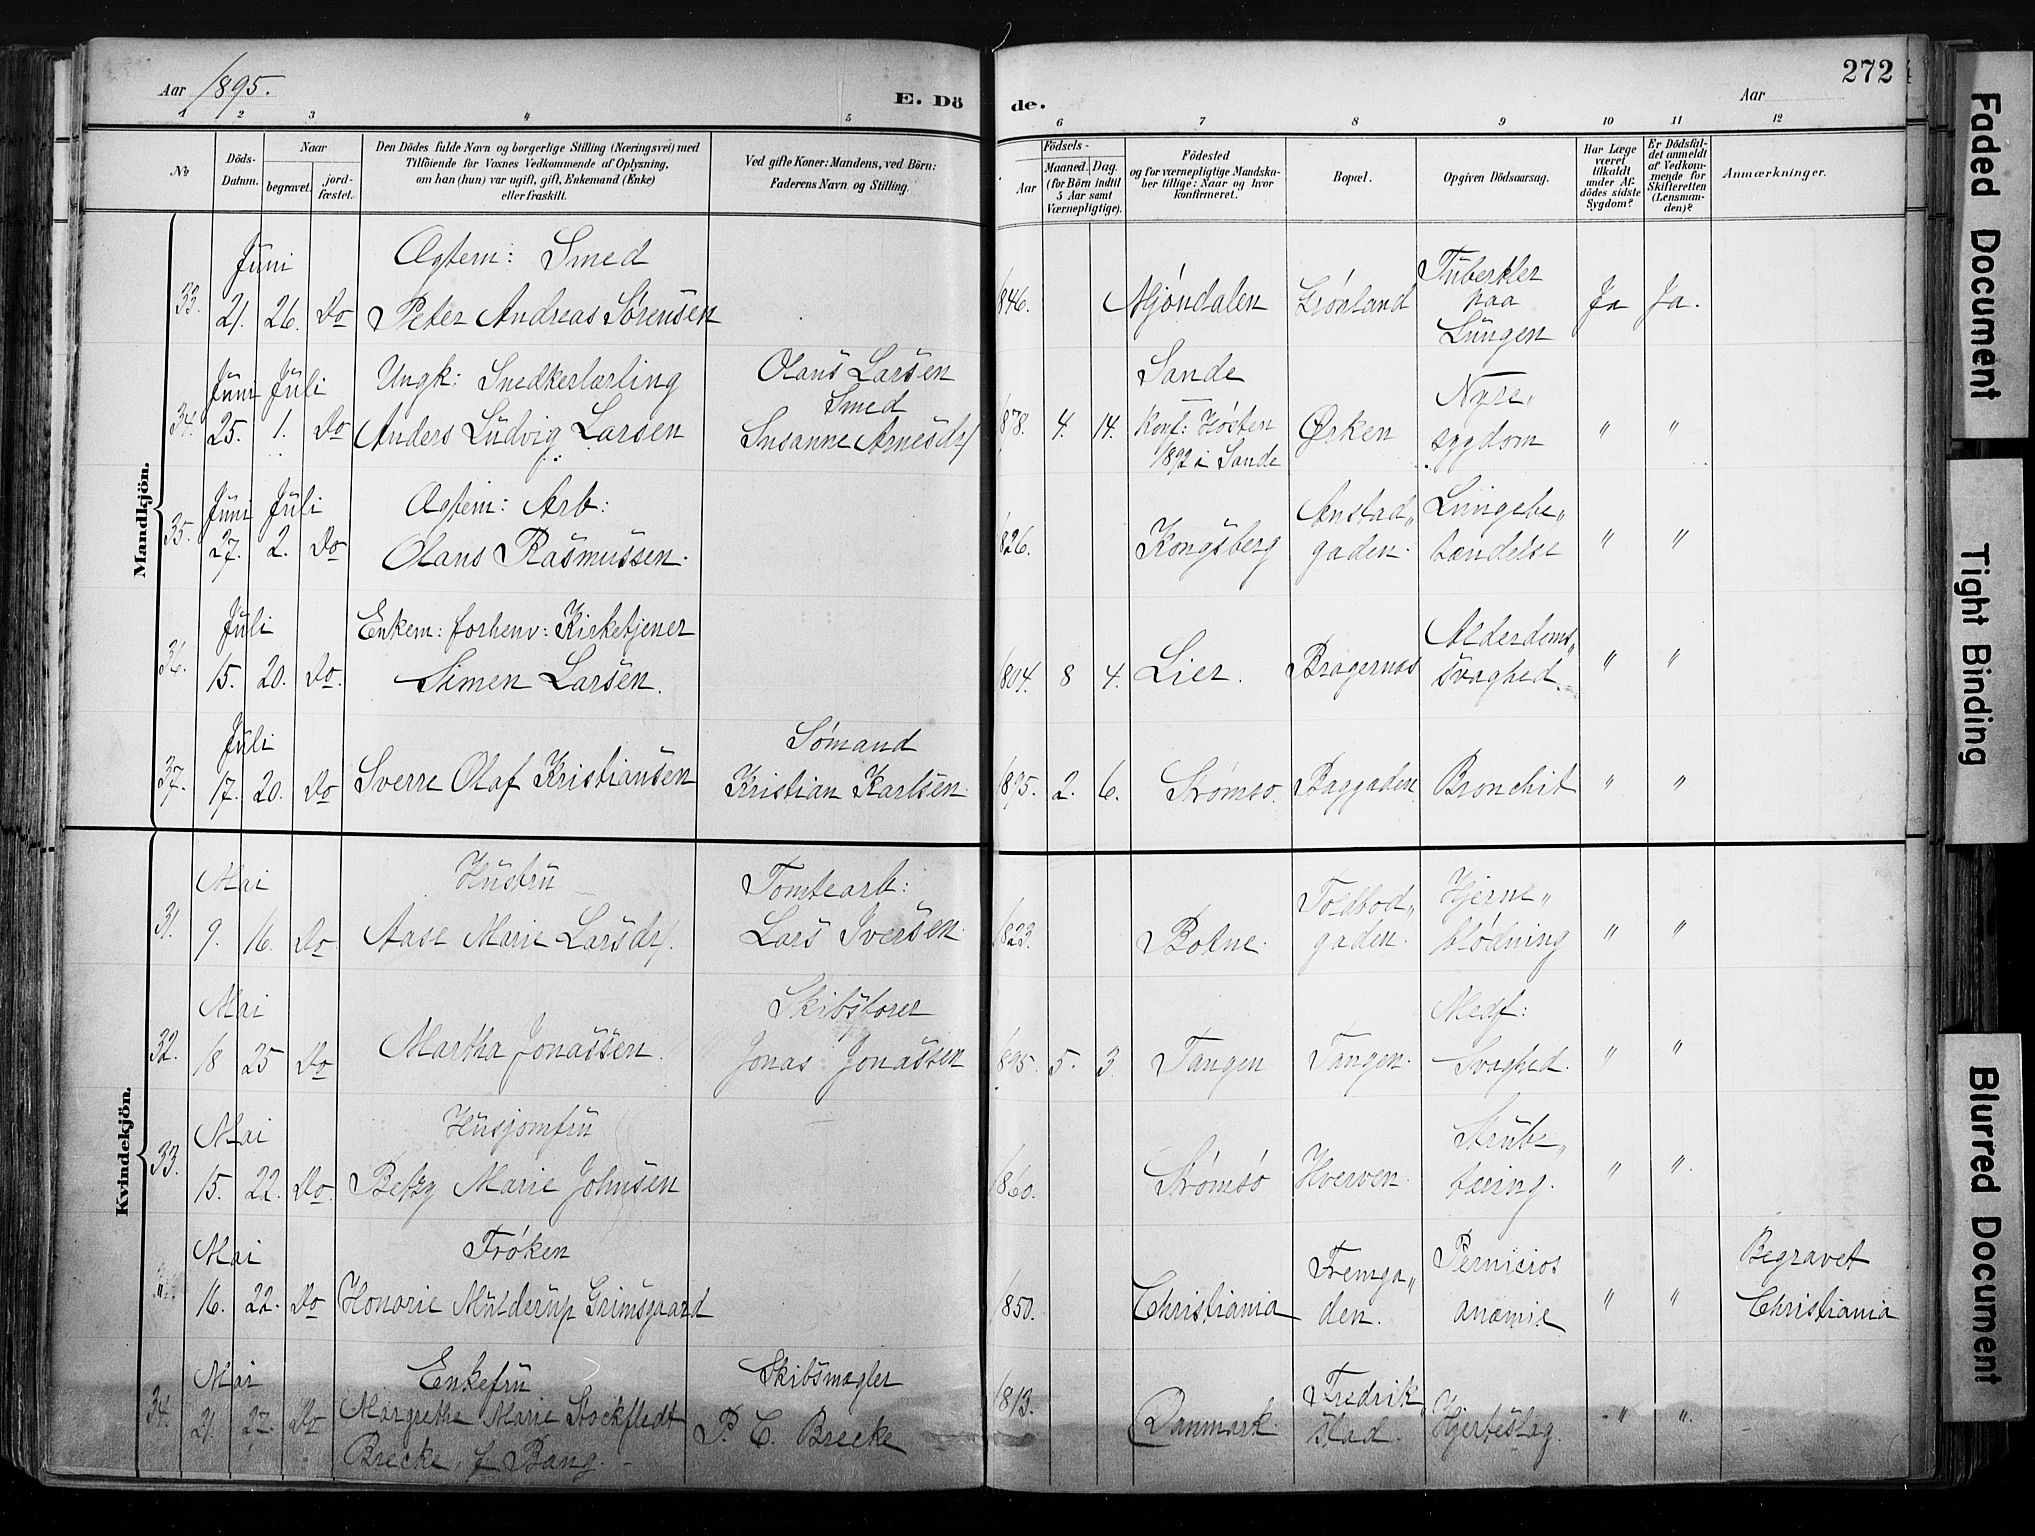 Aar 1895.
E. Dö
de.
Aar
272
1 2 3 4 5 6 7 8 9 10 11 12
No
Döds-
Datum.
Naar
begravet.
jord-
fæstet.
Den Dödes fulde Navn og borgerlige Stilling (Næringsvei) med
Tilföiende for Voxnes Vedkommende af Oplysning,
om han (hun) var ugift, gift, Enkemand (Enke)
eller fraskilt.
Ved gifte Koner: Mandens, ved Börn:
Faderens Navn og Stilling.
Födsels-
Aar
Maaned. Dag.
(for Börn indtil
5 Aar samt
Værnepligtige).
Födested
og for værnepligtige Mandska-
ber tillige: Naar og hvor
konfirmeret.
Bopæl.
Opgiven Dödsaarsag.
Har Læge
været
tilkaldt
under Af-
dödes sidste
Sygdom?
Er Dödsfal-
det anmeldt
af Vedkom-
mende for
Skifteretten
(Lensman-
den)?
Anmærkninger.
Mandkjön.
Juni
Ægtem: Smed
Tuberkler
33. 21. 26. Do Peter Andreas Sörensen 1846. Mjöndalen Grönland paa Ja Ja.
Lungen
Juni Juli Ungk: Snedkerlærling Olaus Larsen Sande Nyre„
Smed
34. 25. 1. Do Anders Ludvig Larsen Susanne Arnesdr/ 1878. 4. 14. Konf: Høsten Ørken sygdom " "
1892 i Sande
Juni Juli Ægtem: Arb: Anstad„ Lungebe„
35. 27. 2. Do Olaus Rasmussen. 1826. Kongsberg gaden. tændelse " "
Juli Enkem: forhenv: Kirketjener Alderdoms„
36. 15. 20. Do. Simen Larsen. 1804. 8 4. Lier. Bragernæs svaghed. " "
Juli Sømand
37. 17. 20. Do Sverre Olaf Kristiansen Kristian Karlsen. 1895. 2. 6. Strømsø. Baggaden Bronchit " "
Kvindekjön.
Mai Hustru Tomtearb: Toldbod„ Hjerne„
31. 9. 16. Do Aase Marie Larsdr/. Lars Iversen. 1823. Botne. gaden. blødning " "
Mai Skibstorer Medf:
32. 18 25 Do Martha Jonassen. Jonas Jonassen 1895. 5. 3. Tangen Tangen. Svaghed. " "
Mai Husjomfru Strube„
33. 15. 22. Do. Betzy Marie Johnsen 1860. Strømsø Hverven. tæring. " "
Mai Frøken Fremga„ Pernicios Begravet
" 16. 22. Do Honorie Mulderup Grimsgaard 1850. Christiania den. anæmie " " Christiania
Mai Enkefru Skibsmægler 1813. Fredrik„
34. 21. 27. Do Margrethe Marie Stockfledt P. C. Brecke Danmark. stad. Hjerteslag. " "
Brecke, f Bang.
Faded Document
Tight Binding
Blurred Document